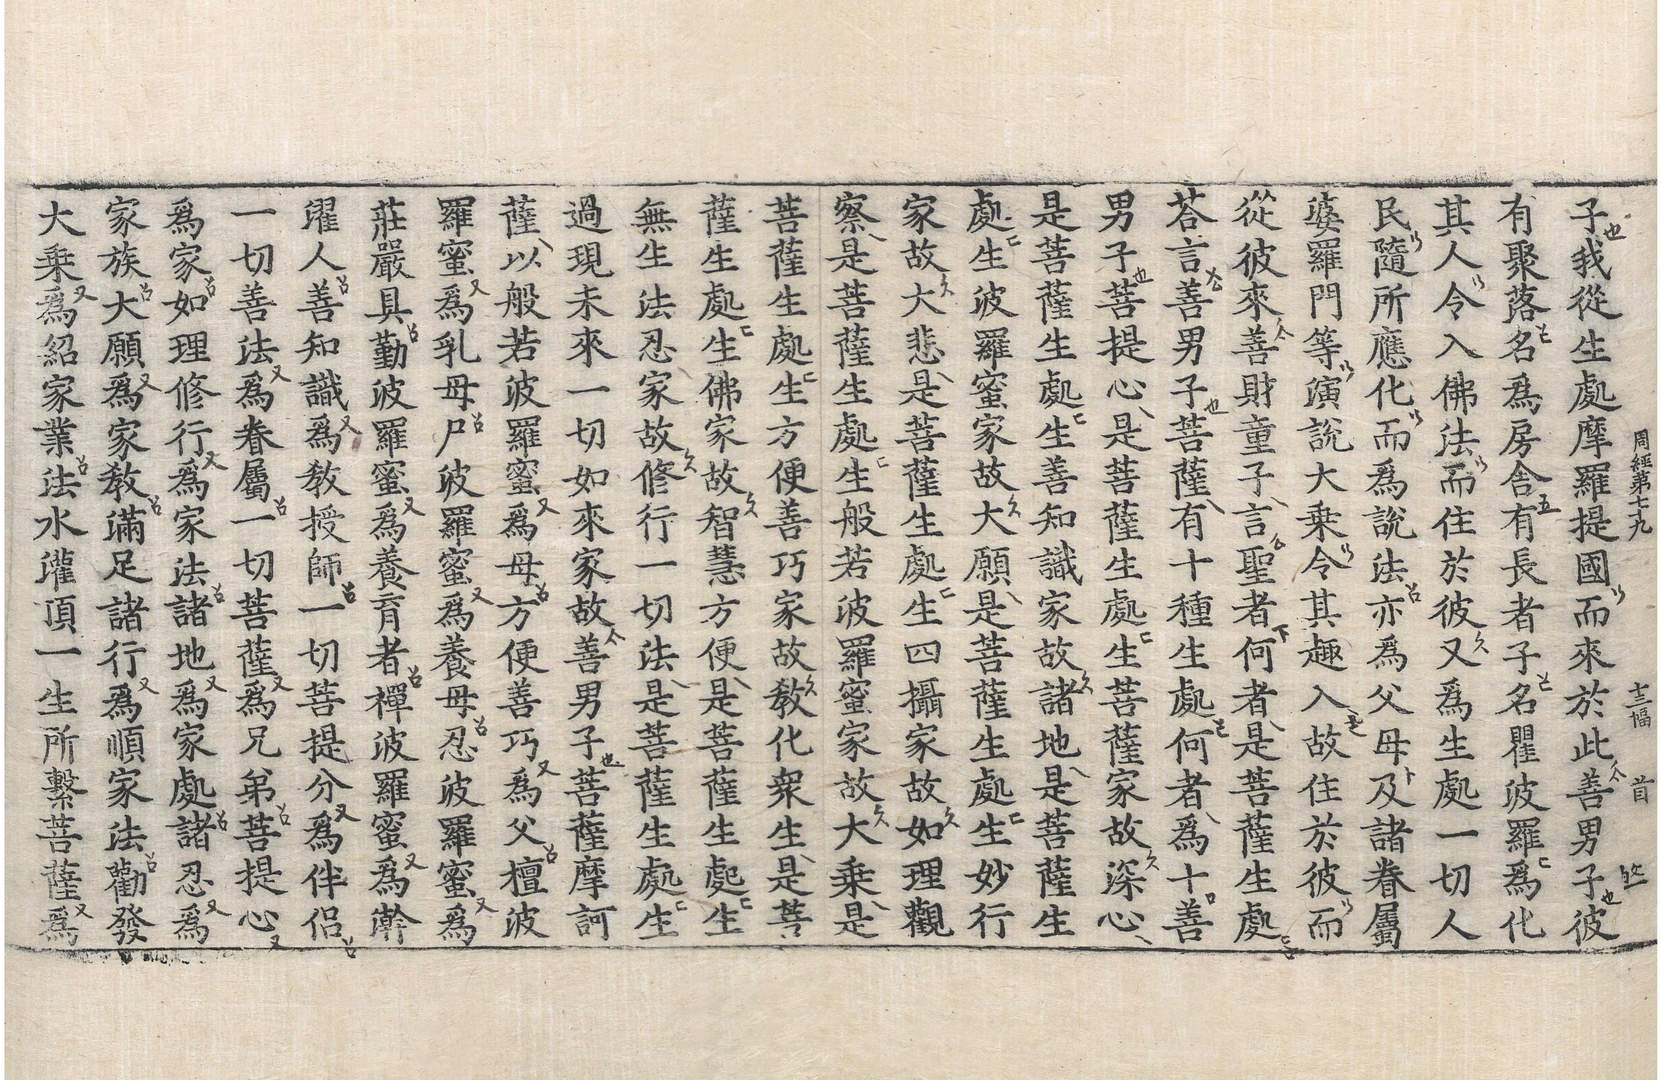 周經第七九 十三幅 首
子我從生處摩羅提國而來於此善男子彼
有聚落名爲房舍有長者子名瞿波羅爲化
其人令入佛法而住於彼又爲生處一切人
民隨所應化而爲說法亦爲父母及諸眷屬
婆羅門等演說大乘令其趣入故住於彼而
從彼來善財童子言聖者何者是菩薩生處
荅言善男子菩薩有十種生處何者爲十善
男子菩提心是菩薩生處生菩薩家故深心
是菩薩生處生善知識家故諸地是菩薩生
處生波羅蜜家故大願是菩薩生處生妙行
家故大悲是菩薩生處生四攝家故如理觀
察是菩薩生處生般若波羅蜜家故大乘是
菩薩生處生方便善巧家故教化衆生是菩
薩生處生佛家故智慧方便是菩薩生處生
無生法忍家故修行一切法是菩薩生處生
過現未來一切如來家故善男子菩薩摩訶
薩以般若波羅蜜爲母方便善巧爲父檀波
羅蜜爲乳母尸波羅蜜爲養母忍波羅蜜爲
莊嚴具勤波羅蜜爲養育者禪波羅蜜爲澣
濯人善知識爲教授師一切菩提分爲伴侶
一切善法爲眷屬一切菩薩爲兄弟菩提心
爲家如理修行爲家法諸地爲家處諸忍爲
家族大願爲家教滿足諸行爲順家法勸發
大乘爲紹家業法水灌頂一生所繫菩薩爲